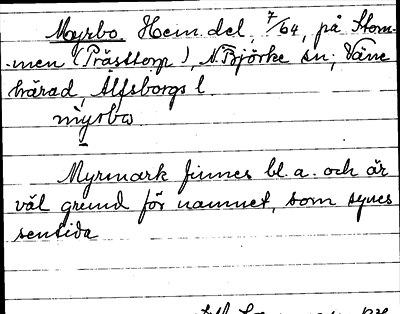 Myrbo Hem.del, 7/64, på Stom-
-men (Prästtorp), N. Björke sn; Väne
härad, Älfsborgs l.
myrbω
Myrmark finnes bl.a. och är
väl grund för namnet, som synes
sentida